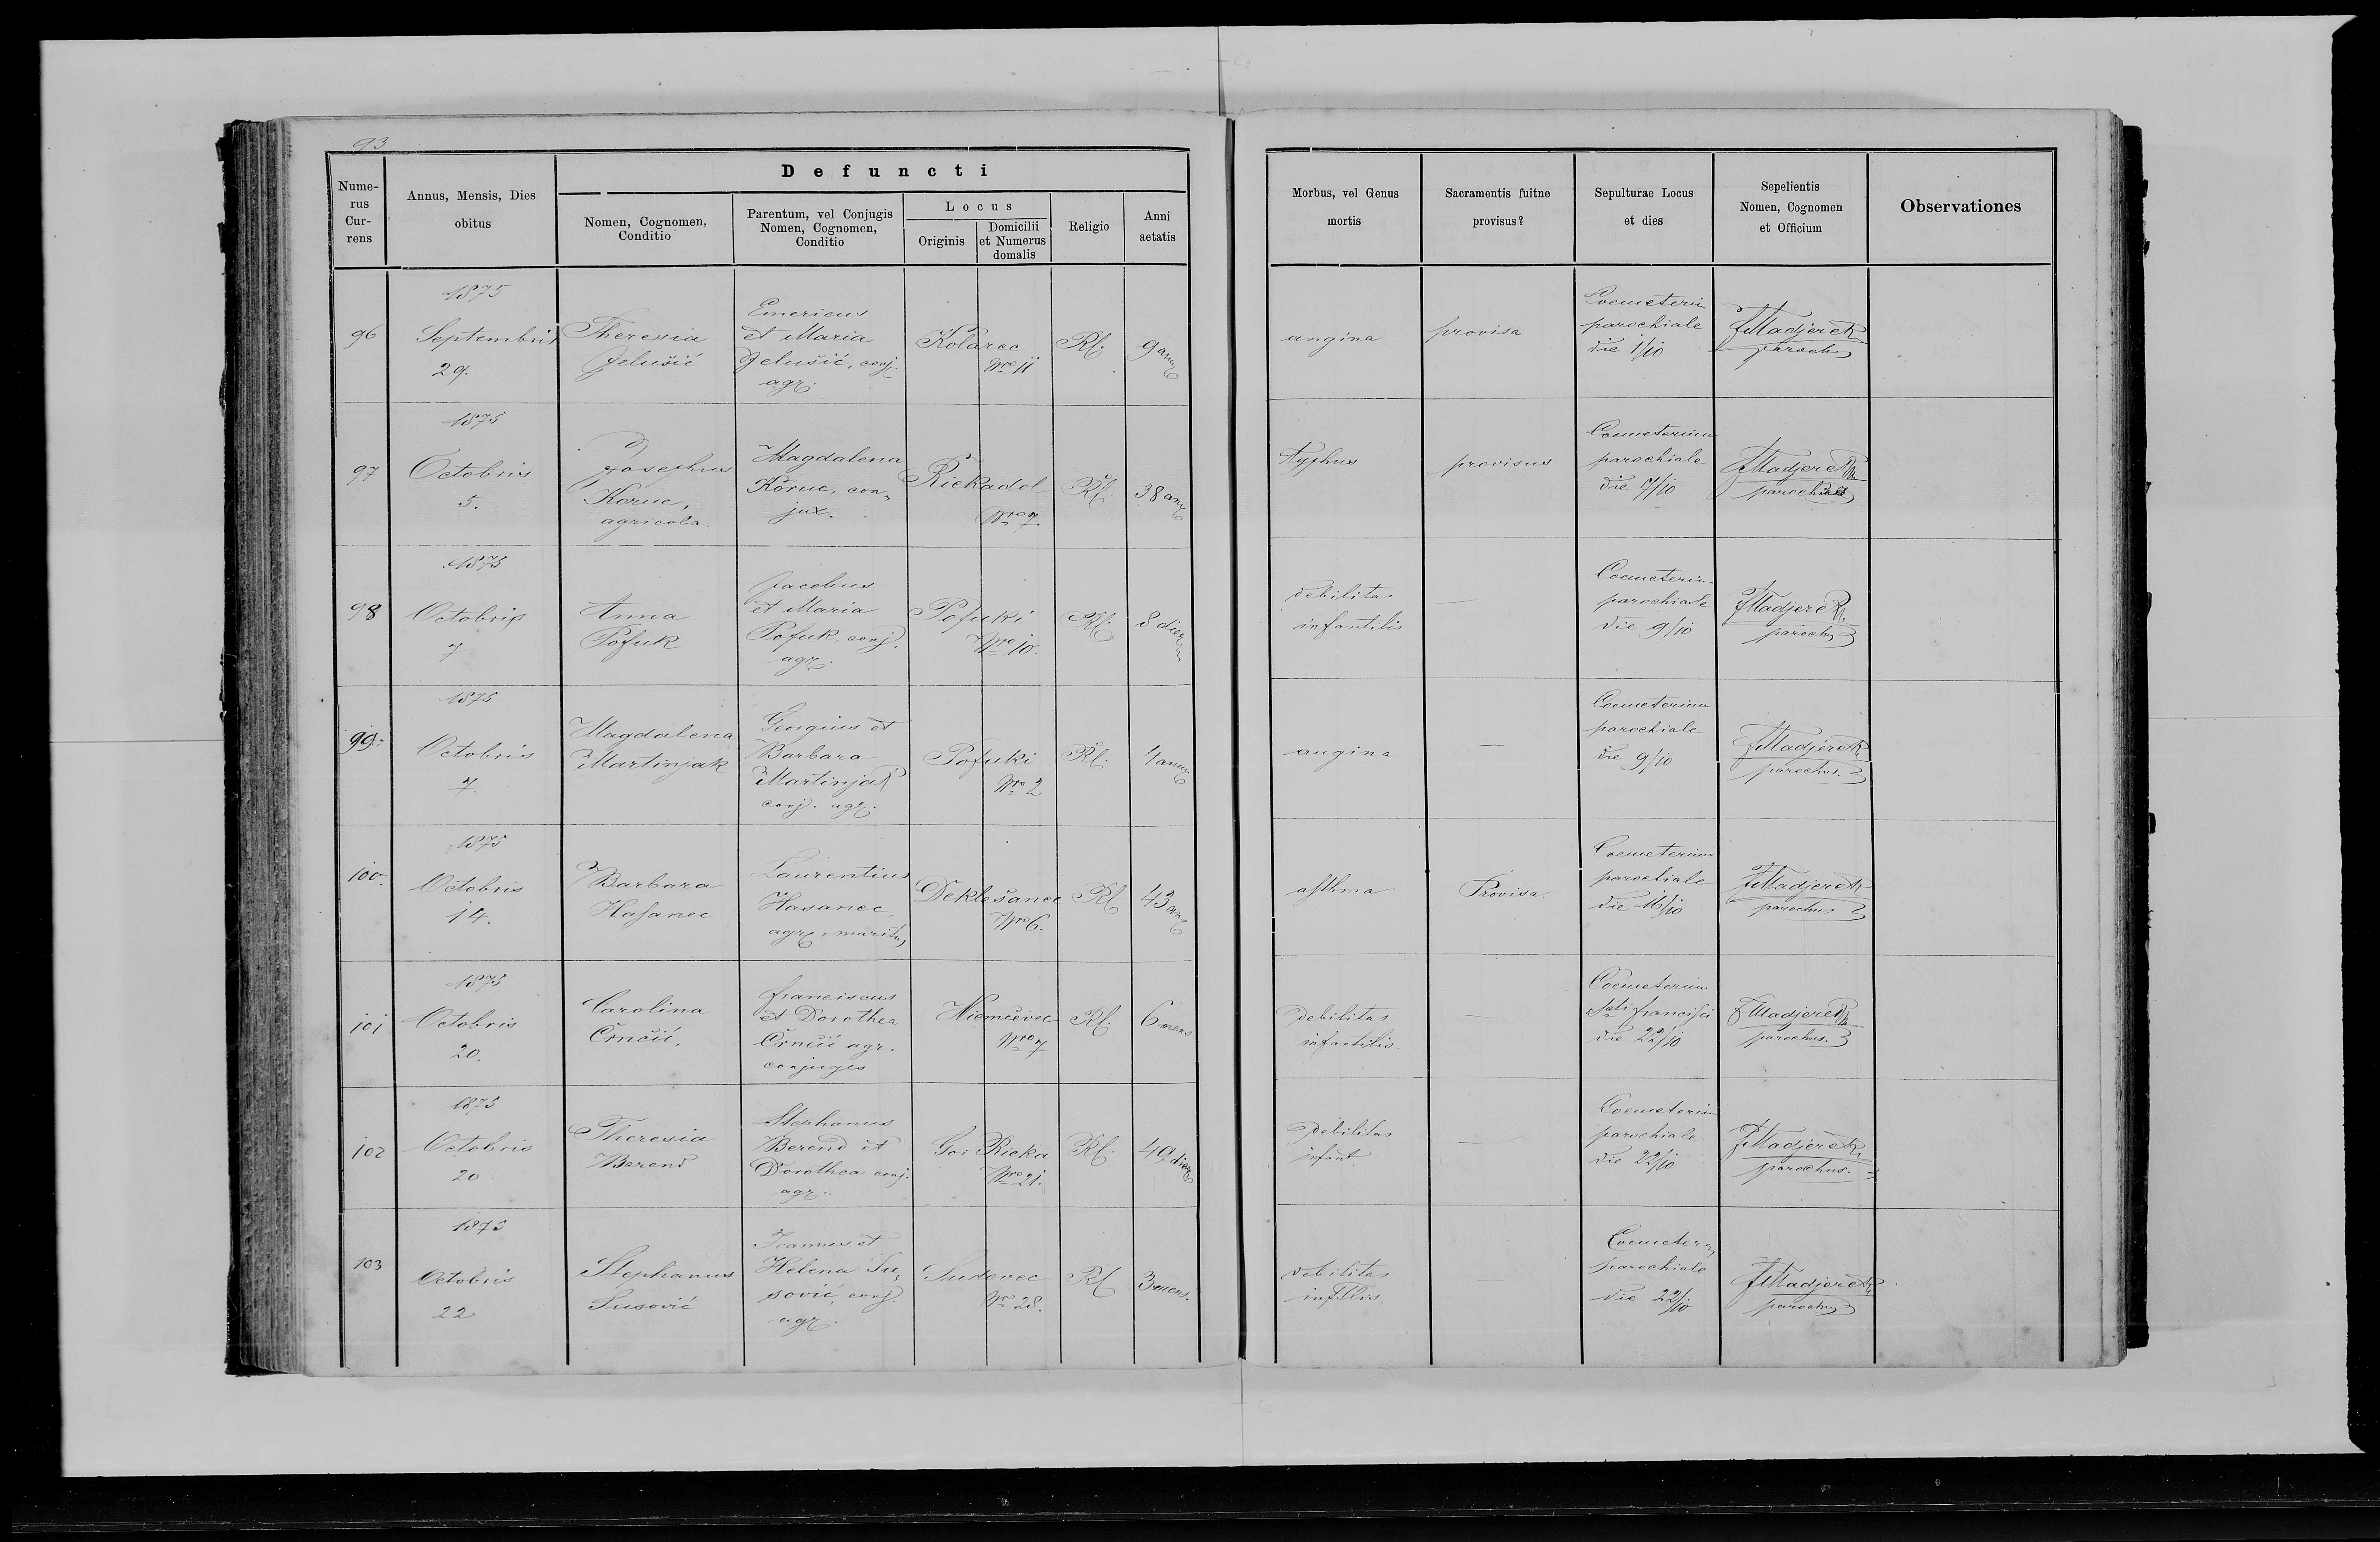 93
Defuncti
Nume-
rus
Cur-
rens
Annus, Mensis, Dies
obitus
Nomen, Cognomen,
Conditio
Parentum, vel Conjugis
Nomen, Cognomen,
Conditio
Locus
Originis
Domicilii
et Numerus
domalis
Religio
Anni
aetatis
Morbus, vel Genus
mortis
Sacramentis fuitne
provisus?
Sepulturae Locus
et dies
Sepelientis
Nomen, Cognomen
et Officium
Observationes
96
1875
Septembris
29.
Theresia
Jelušić
Emericus
et Maria
Jelušić, conj.
agr.
Kolarec
Nro 11
Rk.
9 ann
angina
provisa
Coemeterium
parochiale
die 1/10
FMadjerek
parochus
97
1875
Octobris
5.
Josephus
Koruc,
agricola.
Magdalena
Koruc, con„
jux.
Riekadol
Nro 7.
Rk.
38 ann
typhus
provisus
Coemeterium
parochiale
die 7/10
FMadjerek
parochus
98
1875
Octobris
7
Anna
Pofuk
Jacobus
et Maria
Pofuk, conj.
agr.
Pofuki
Nro 10.
Rk.
8 dier
debilitas
infantilis
—
Coemeterium
parochiale
die 9/10
FMadjerek
parochus
99.
1875
Octobris
7.
Magdalena
Martinjak
Georgius et
Barbara
Martinjak
conj. agr.
Pofuki
Nro 2
Rk.
4 ann
angina
—
Coemeterium
parochiale
die 9/10
FMadjerek
parochus.
100.
1875
Octobris
14.
Barbara
Hasanec
Laurentius
Hasanec,
agr. maritus
Deklešanec
Nro 6.
Rk.
43 ann
asthma
Provisa.
Coemeterium
parochiale
die 16/10
FMadjerek
parochus
101
1875
Octobris
20.
Carolina
Črnčić,
franciscus
et Dorothea
Črnčić agr.
conjuges
Niemčevec
Nro 7
Rk.
6 mens
debilitas
infantilis
—
Coemeterium
Sti francisci
die 22/10
FMadjerek
parochus.
102
1875
Octobris
20.
Theresia
Berend
Stephanus
Berend et
Dorothea conj.
agr.
Gor Rieka
Nro 21.
Rk.
49 dier
debilitas
infant
—
Coemeterium
parochiale
die 22/10
FMadjerek
parochus.
103
1875
Octobris
22
Stephanus
Susović
Joannes et
Helena Su„
sović, conj.
agr.
Sudovec
Nro 28.
Rk
3 mens.
debilitas
inftilis
—
Coemeter„
parochiale
die 22/10
FMadjerek
parochus